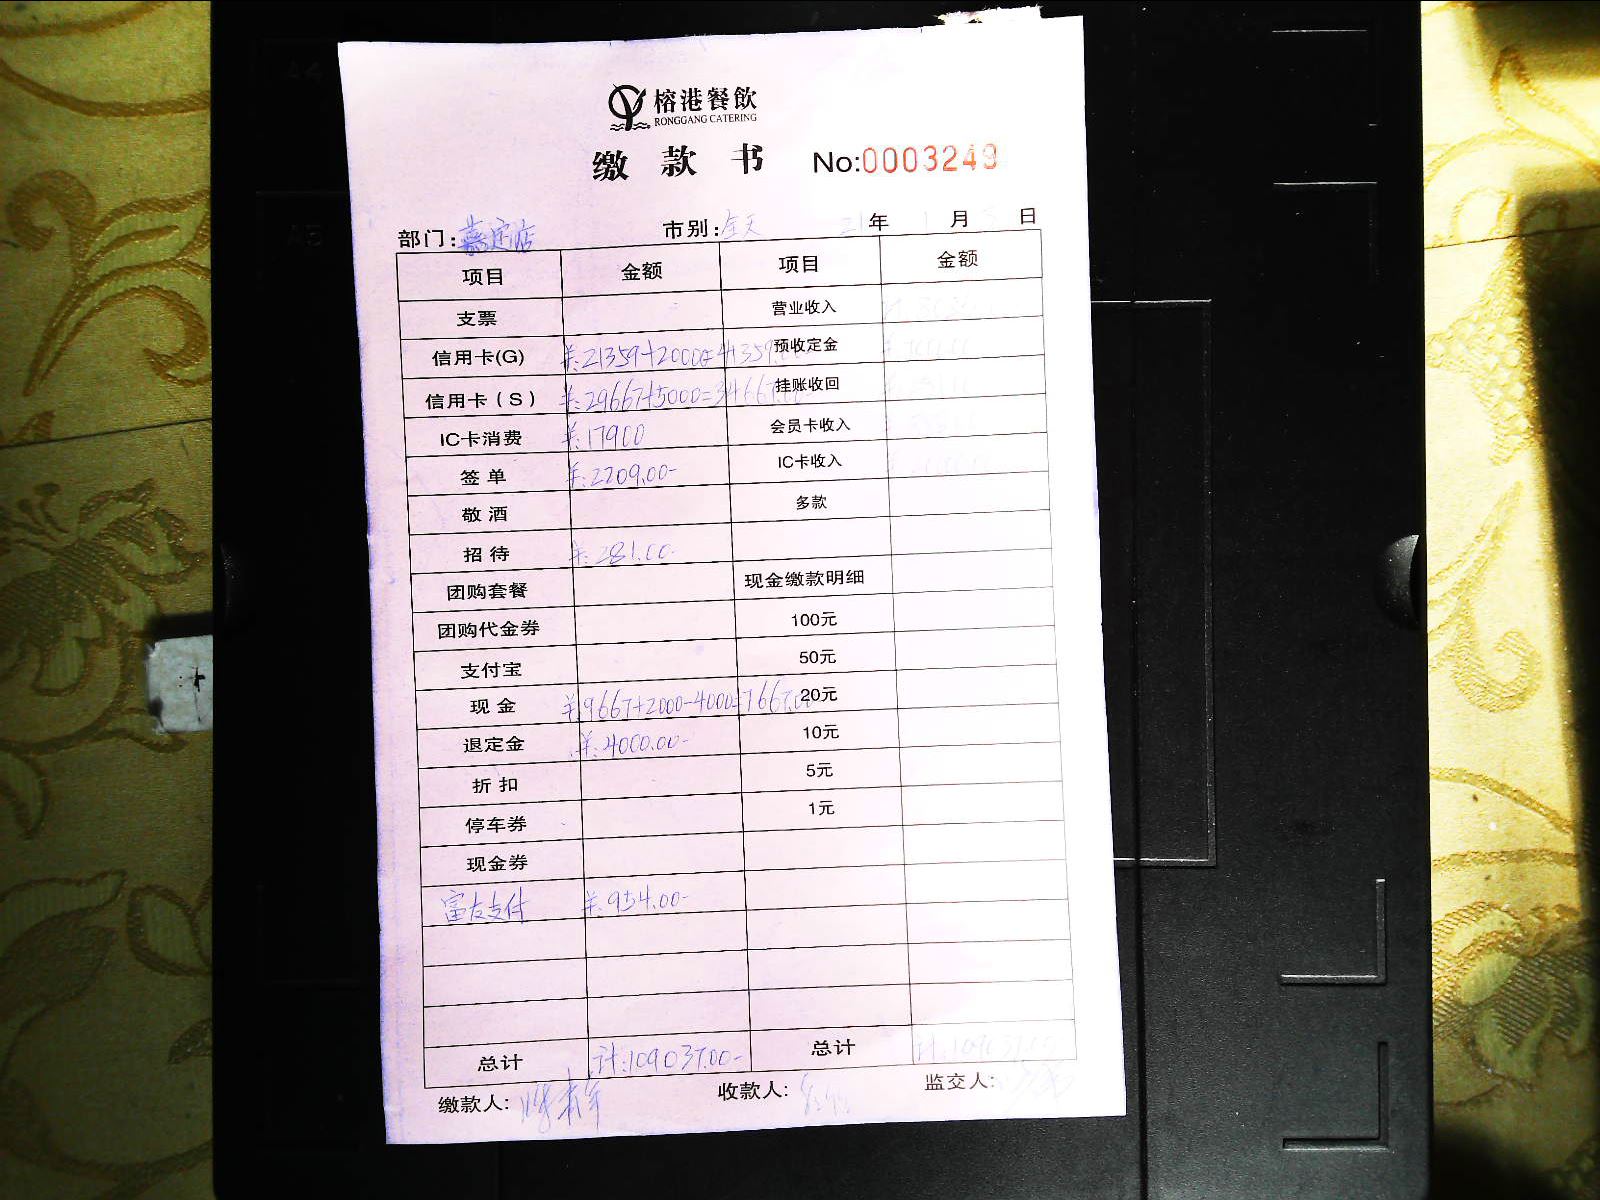 榕港餐飲
RONGGANG CATERING
缴款书 No:0003249
部门:嘉定店 市别:全天 21年1月5日
项目 金额 项目 金额
支票 营业收入
信用卡(G) ¥:21359+20000=41359.00 预收定金
信用卡(S) ¥:29667+5000=34667.00- 挂账收回
IC卡消费 ¥:17900 会员卡收入
签单 ¥:2209.00- IC卡收入
敬酒 多款
招待 ¥:281.00-
团购套餐 现金缴款明细
团购代金券 100元
支付宝 50元
现金 ¥:9667+2000-4000=7667.00 20元
退定金 ¥:4000.00- 10元
折扣 5元
停车券 1元
现金券
富友支付 ¥:954.00-
总计 计:109037.00- 总计 计:109037.00
缴款人: 收款人: 监交人: